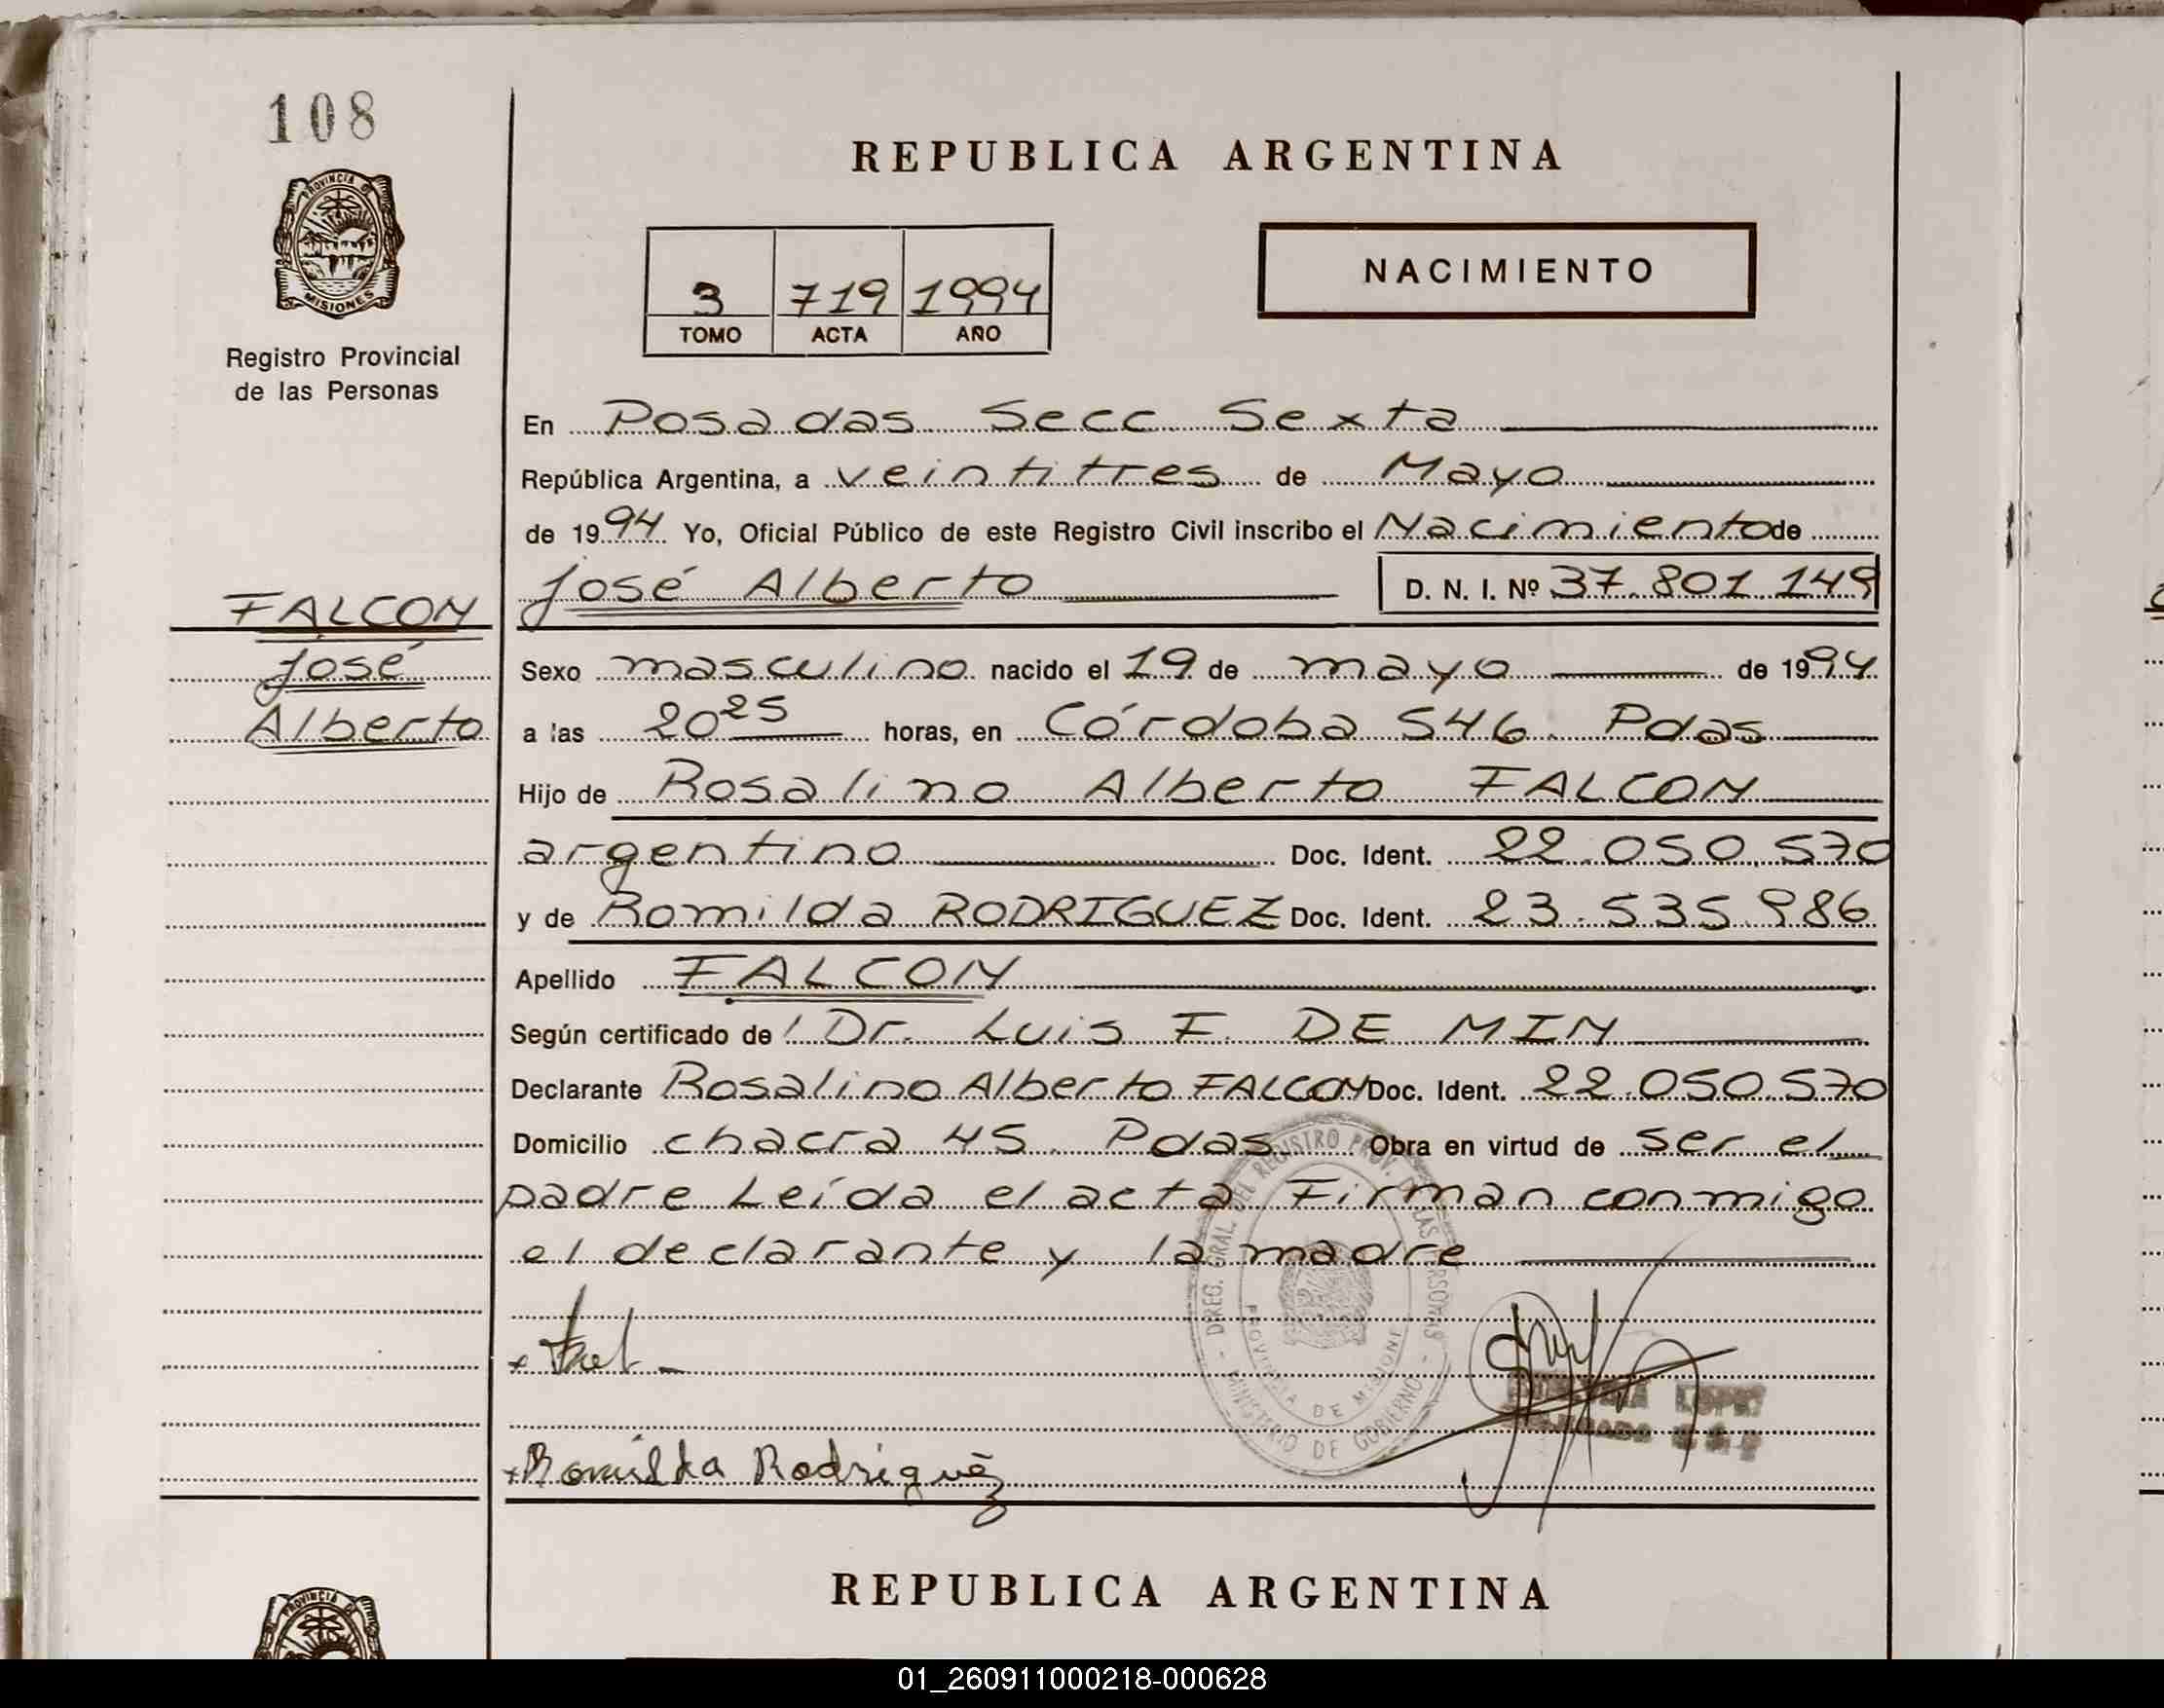 108
PROVINCIA DE
MISIONES
Registro Provincial
de las Personas
REPUBLICA ARGENTINA
3 719 1994
TOMO ACTA AÑO
NACIMIENTO
En Posadas Secc Sexta
República Argentina, a veintitres de Mayo
de 1994 Yo, Oficial Público de este Registro Civil inscribo el Nacimiento de
José Alberto D. N. I. Nº 37.801.149
FALCON
José
Alberto
Sexo masculino nacido el 19 de mayo de 1994
a las 20 25 horas, en Córdoba 546. Pdas
Hijo de Rosalino Alberto FALCON
argentino Doc. Ident. 22.050.570
y de Romilda RODRIGUEZ Doc. Ident. 23.535.986
Apellido FALCON
Según certificado de Dr. Luis F. DE MIN
Declarante Rosalino Alberto FALCON Doc. Ident. 22.050.570
Domicilio chacra 45. Pdas Obra en virtud de ser el
padre Leída el acta Firman conmigo
el declarante y la madre
DIREG. GRAL. DEL REGISTRO PROV. DE LAS PERSONAS
PROVINCIA DE MISIONES
MINISTERIO DE GOBIERNO
Romilda Rodriguez
REPUBLICA ARGENTINA
PROVINCIA DE
01_260911000218-000628